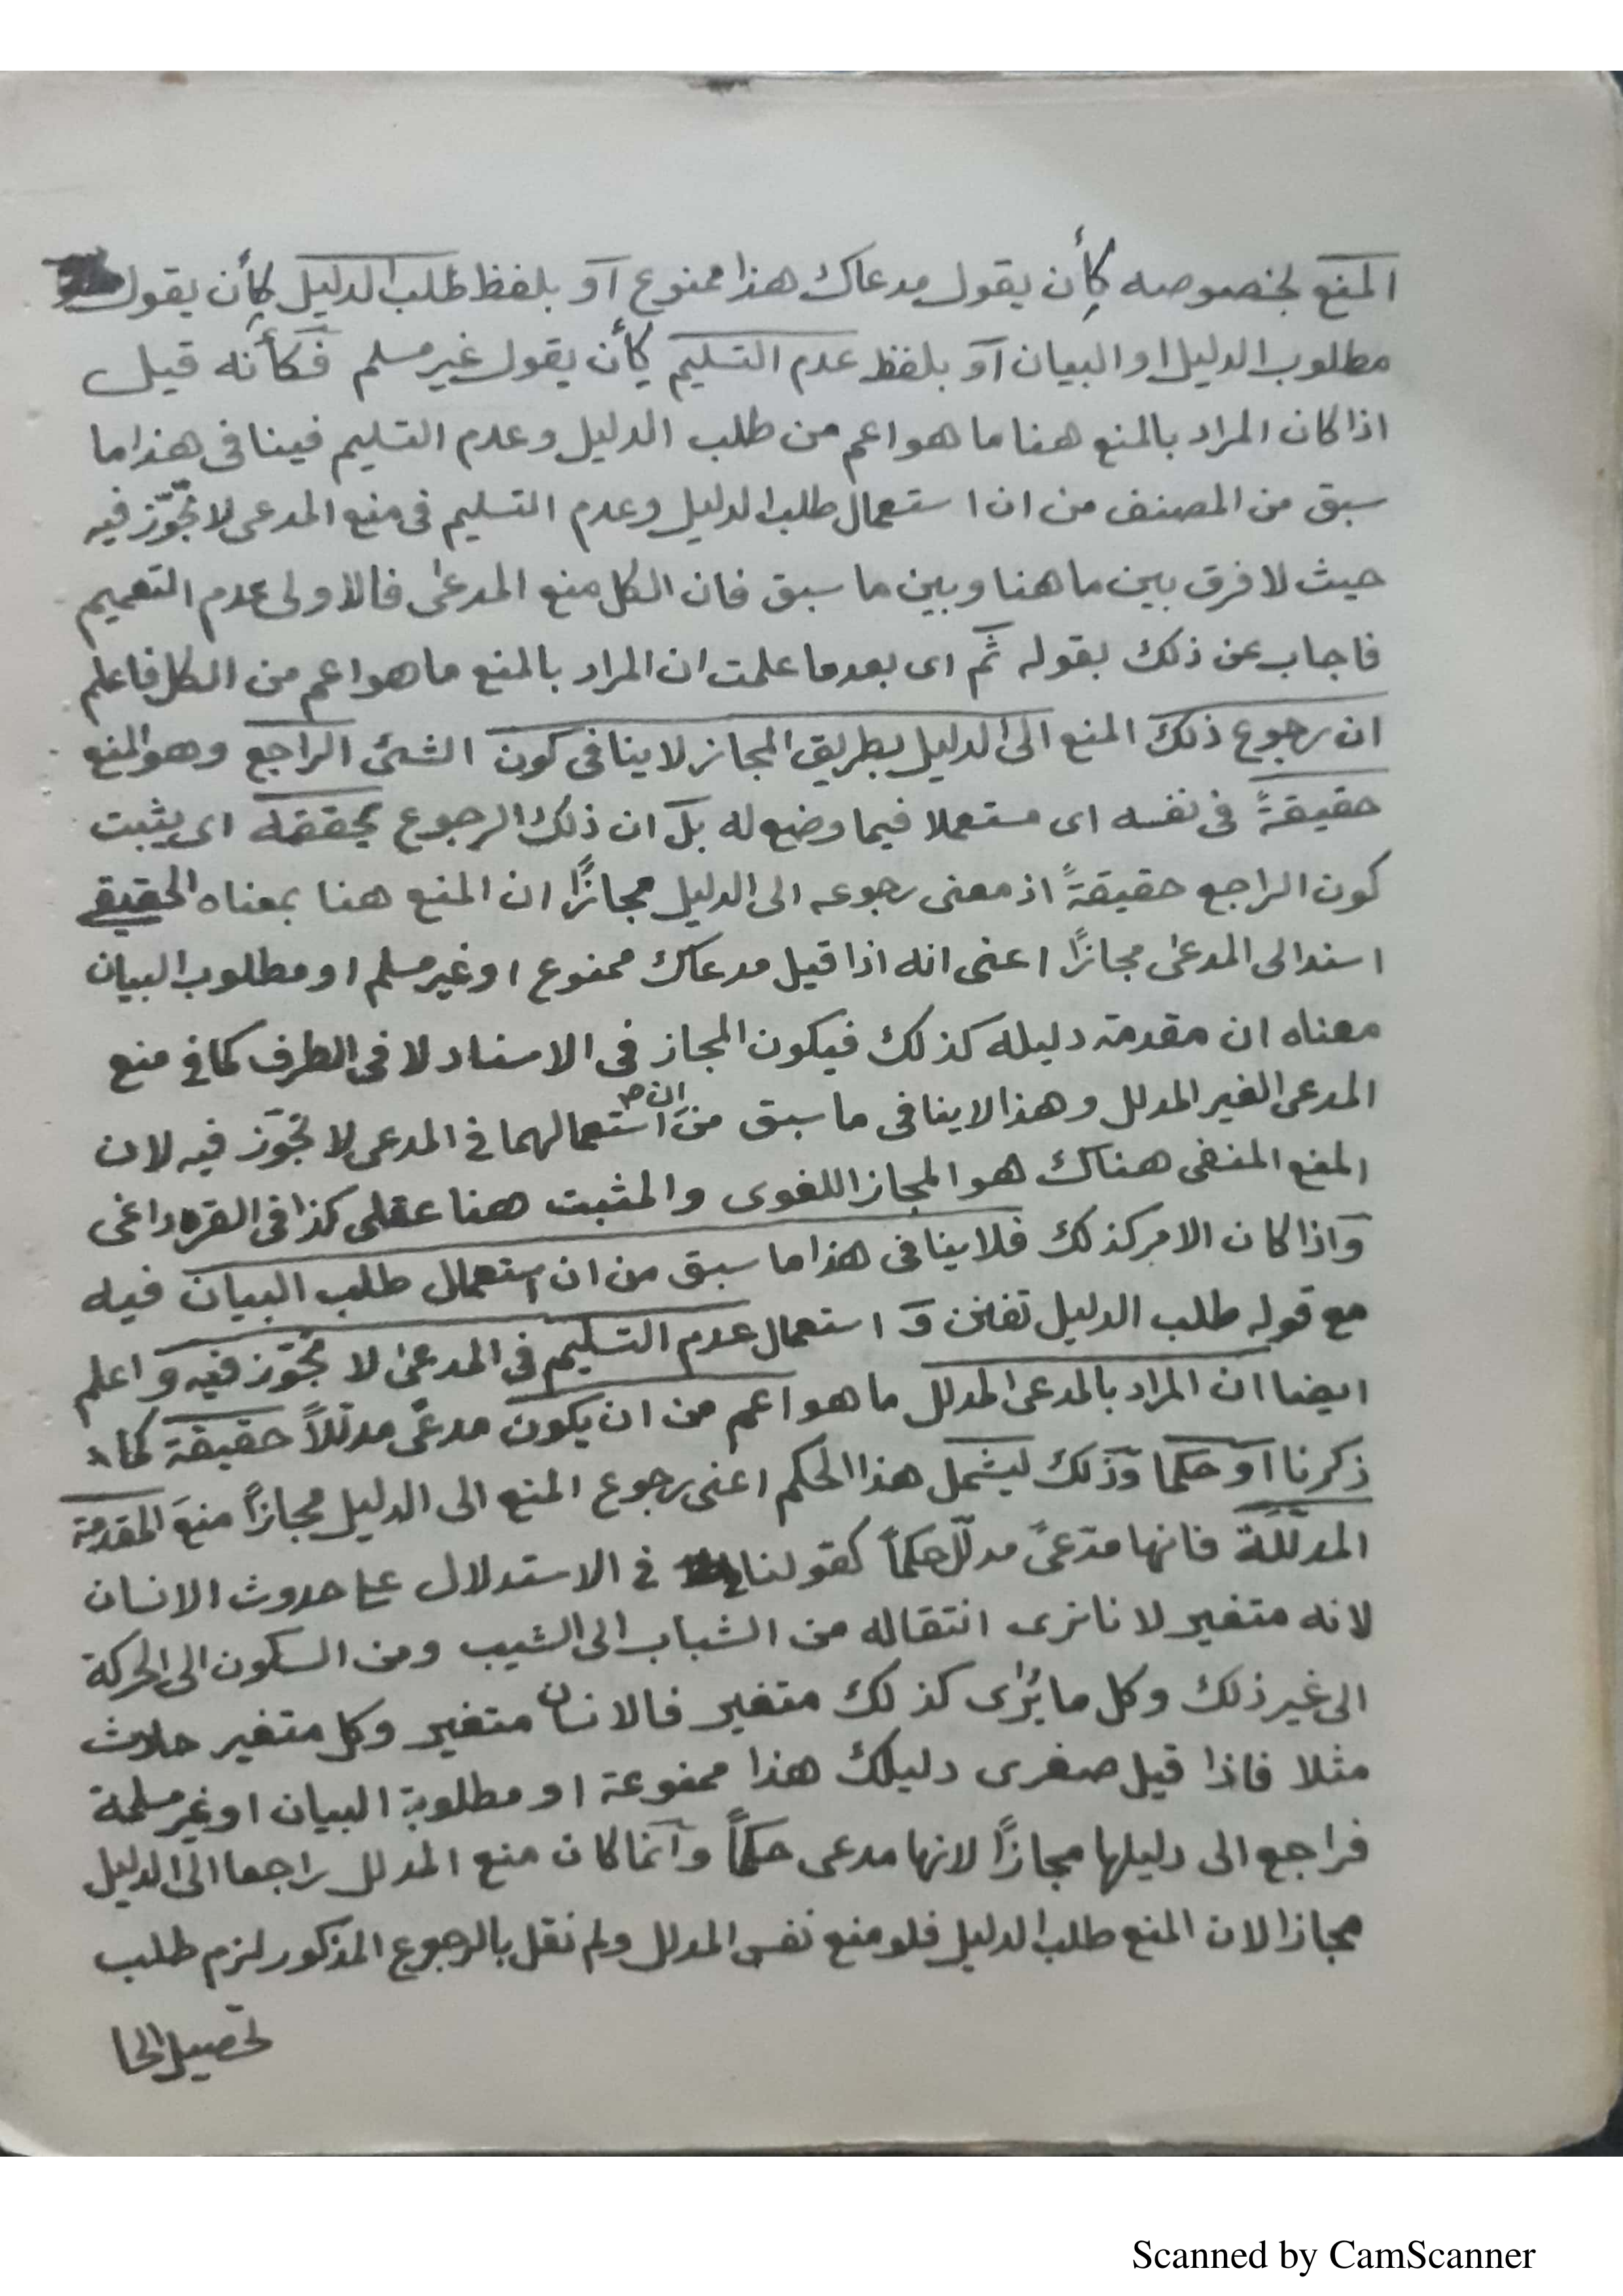 المنع لخصوصه كأن يقول مدعاك هذا ممنوع أو بلفظ طلب الدليل كأن يقول
مطلوب الدليل او البيان أو بلفظ عدم التسليم كأن يقول غير مسلم فكأنه قيل
اذا كان المراد بالمنع هنا ما هو اعم من طلب الدليل وعدم التسليم فينافى هذا ما
سبق من المصنف من ان استعمال طلب الدليل وعدم التسليم فى منع المدعى لا تجوّز فيه
حيث لا فرق بين ما هنا وبين ما سبق فان الكل منع المدعى فالاولى عدم التعميم
فاجاب عن ذلك بقوله ثم اى بعد ما علمت ان المراد بالمنع ما هو اعم من الكل فاعلم
ان رجوع ذلك المنع الى الدليل بطريق المجاز لا ينافى كون الشئ الراجع وهو المنع
حقيقةً فى نفسه اى مستعملا فيما وضع له بل ان ذلك الرجوع يحققه اى يثبت
كون الراجع حقيقةً اذ معنى رجوعه الى الدليل مجازًا ان المنع هنا بمعناه الحقيقى
اسند الى المدعى مجازًا اعنى انه اذا قيل مدعاك ممنوع او غير مسلم او مطلوب البيان
معناه ان مقدمة دليله كذلك فيكون المجاز فى الاسناد لا فى الطرف كما فى منع
المدعى الغير المدلل وهذا لا ينافى ما سبق من ان استعمالهما فى المدعى لا تجوّز فيه لان
المنع المنفى هناك هو المجاز اللغوى والمثبت هنا عقلى كذا فى القره داغى
واذا كان الامر كذلك فلا ينافى هذا ما سبق من ان استعمال طلب البيان فيه
مع قوله طلب الدليل تفنن و استعمال عدم التسليم فى المدعى لا تجوّز فيه و اعلم
ايضا ان المراد بالمدعى المدلل ما هو اعم من ان يكون مدعًى مدللاً حقيقة كما
ذكرنا او حكما وذلك ليشمل هذا الحكم اعنى رجوع المنع الى الدليل مجازاً منعَ المقدمة
المدلَّلة فانها مدّعىً مدلّل حكماً كقولنا فى الاستدلال على حدوث الانسان
لانه متغير لانا نرى انتقاله من الشباب الى الشيب ومن السكون الى الحركة
الى غير ذلك وكل ما يُرٰى كذلك متغير فالانسان متغير وكل متغير حادث
مثلا فاذا قيل صغرى دليلك هذا ممنوعة او مطلوبة البيان او غير مسلمة
فراجع الى دليلها مجازًا لانها مدعى حكماً وانما كان منع المدلل راجعا الى الدليل
مجازا لان المنع طلب الدليل فلو منع نفس المدلل ولم نقل بالرجوع المذكور لزم طلب
تحصيل الحا
Scanned by CamScanner